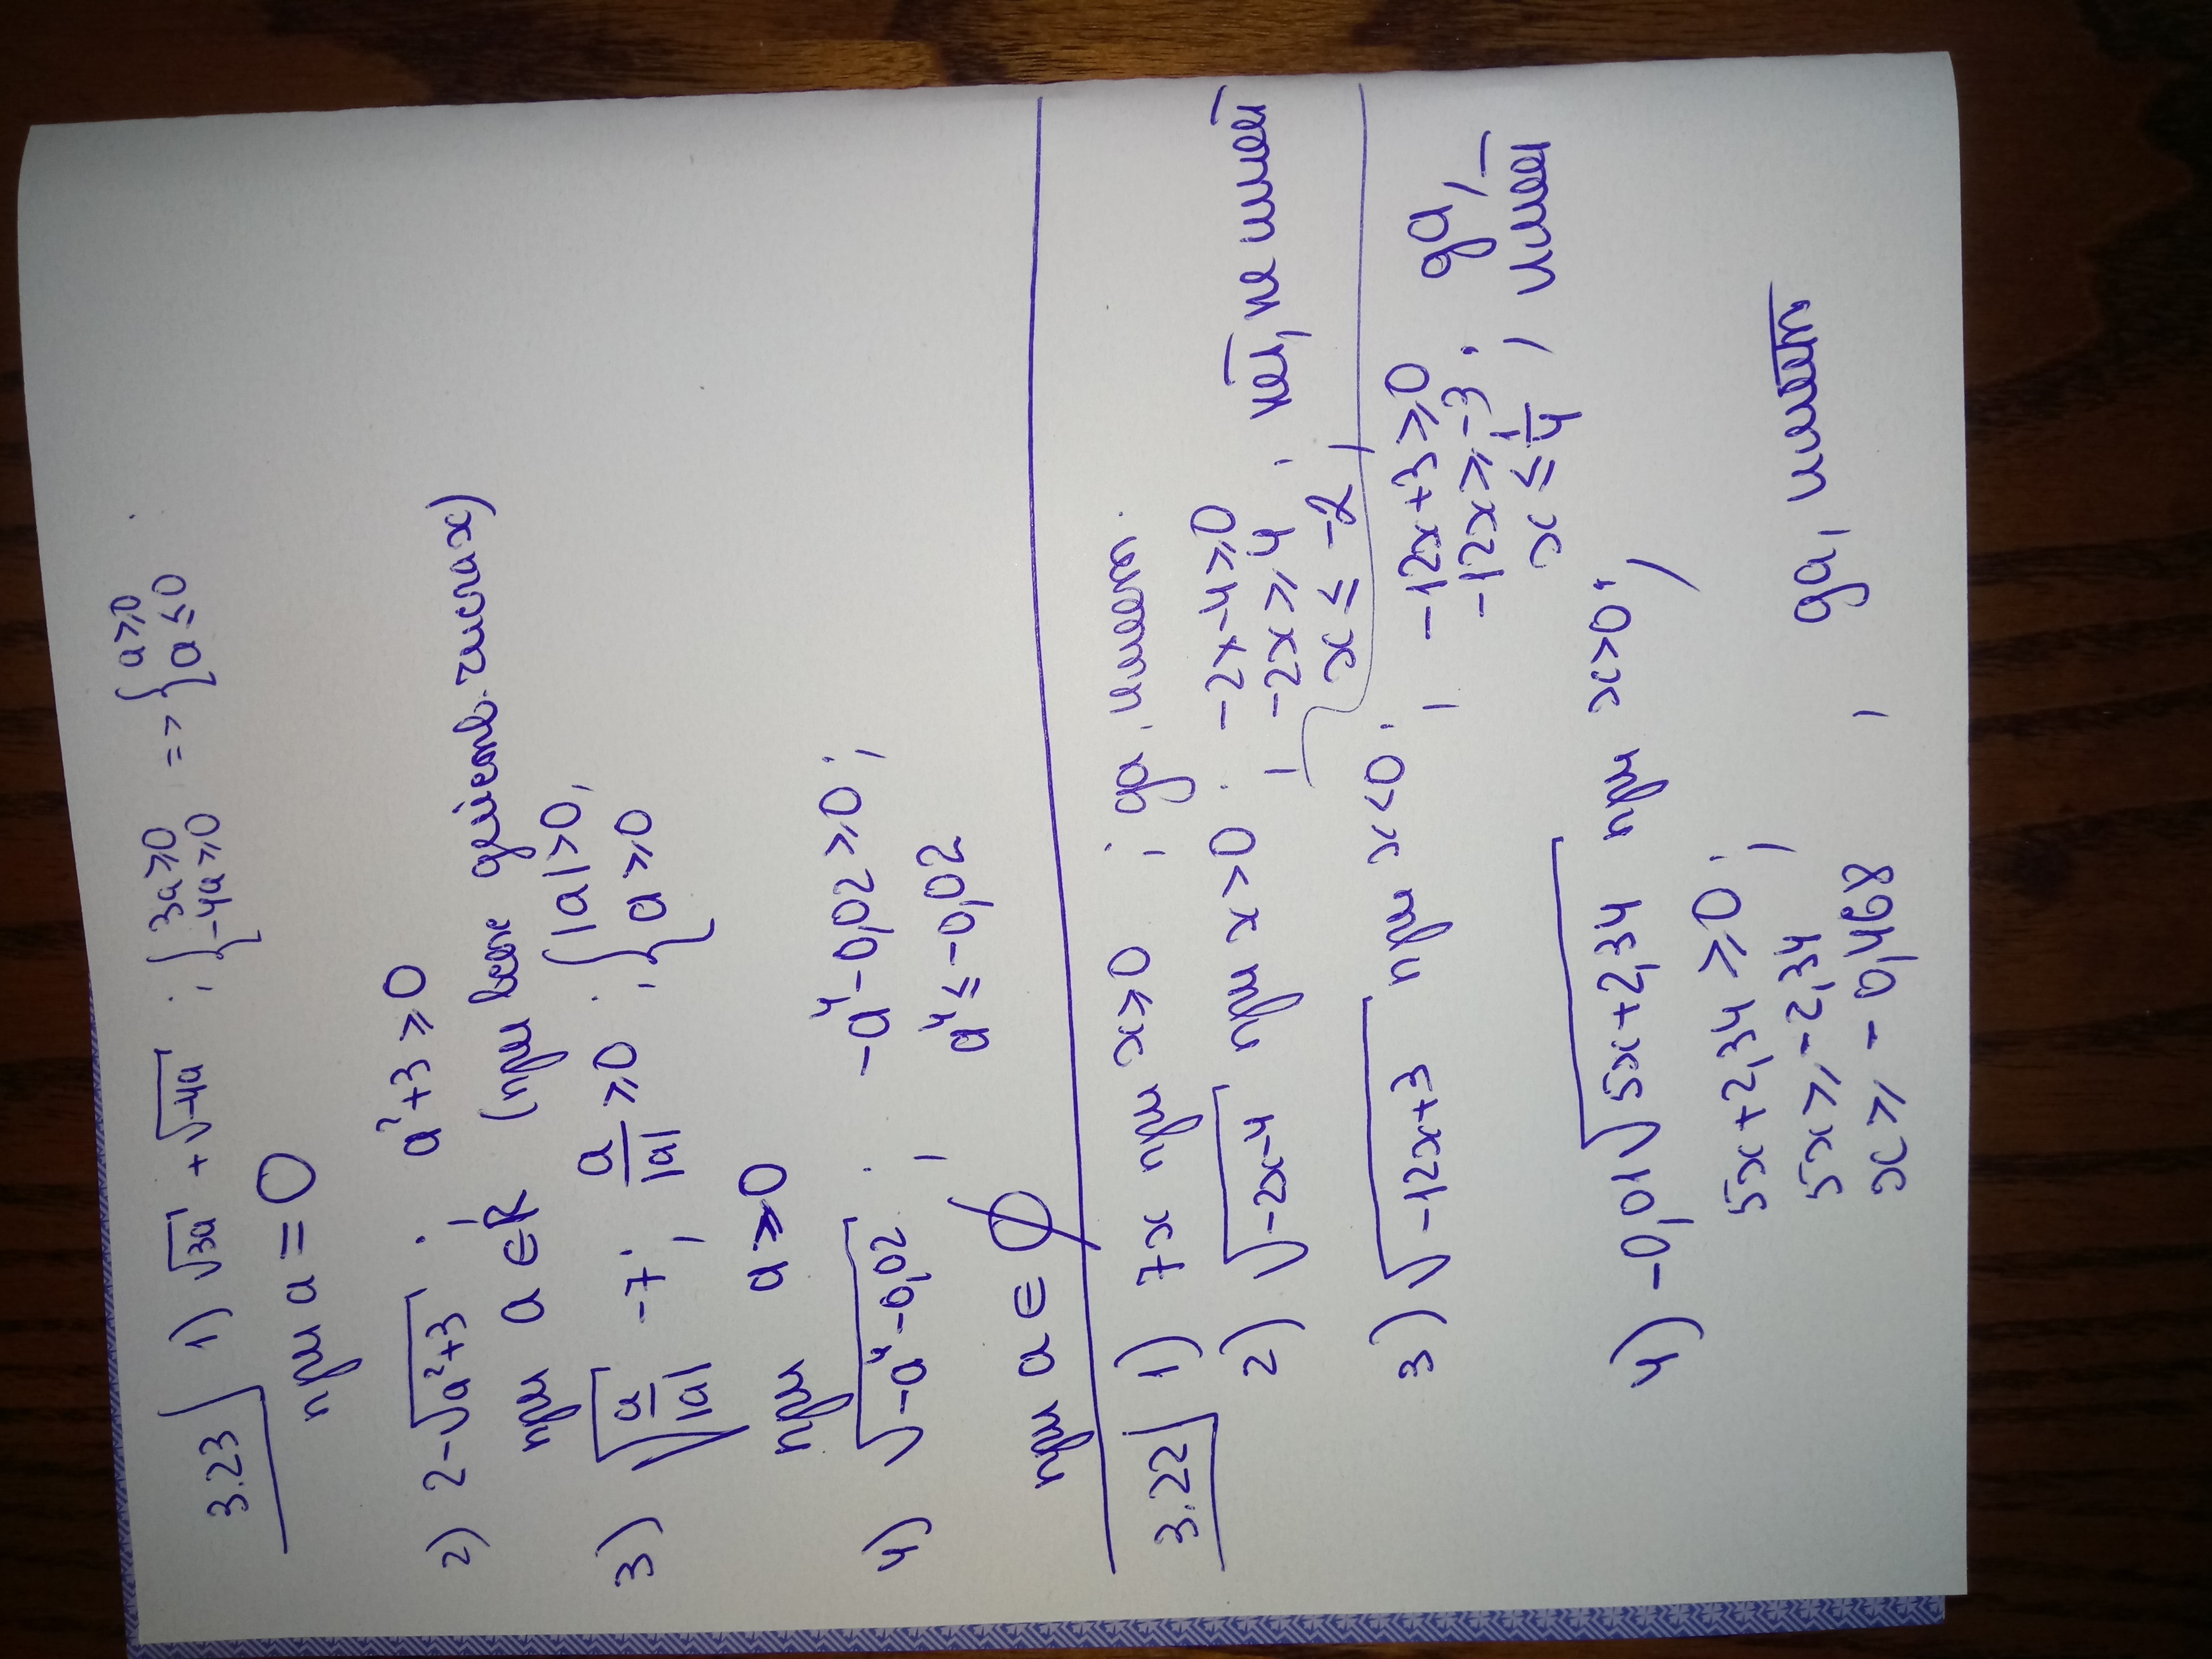 3.23 1) √3a + √-4a ; { 3a ≥ 0 => { a ≥ 0
-4a ≥ 0 a ≤ 0
при a = 0
2) 2-√a²+3 ; a²+3 ≥ 0
при a ∈ R (при всех действит. знач. x)
3) √a/|a| -7 ; a/|a| ≥ 0 ; { |a| > 0,
a ≥ 0
при a ≥ 0
4) √-a⁴-0,02 ; -a⁴-0,02 ≥ 0 ;
a⁴ ≤ -0,02
при a ∈ ∅
3.22 1) 7x при x ≥ 0 ; да, имеет.
2) √-2x-4 при x > 0 ; -2x-4 ≥ 0
-2x ≥ 4 ; нет, не имеет
x ≤ -2
3) √-12x+3 при x < 0 ; -12x+3 ≥ 0
-12x ≥ -3 ; да,
x ≤ 1/4 , имеет
4) -0,01√5x+2,34 при x > 0 ;
5x+2,34 ≥ 0 ;
5x ≥ -2,34
x ≥ -0,468 , да, имеет